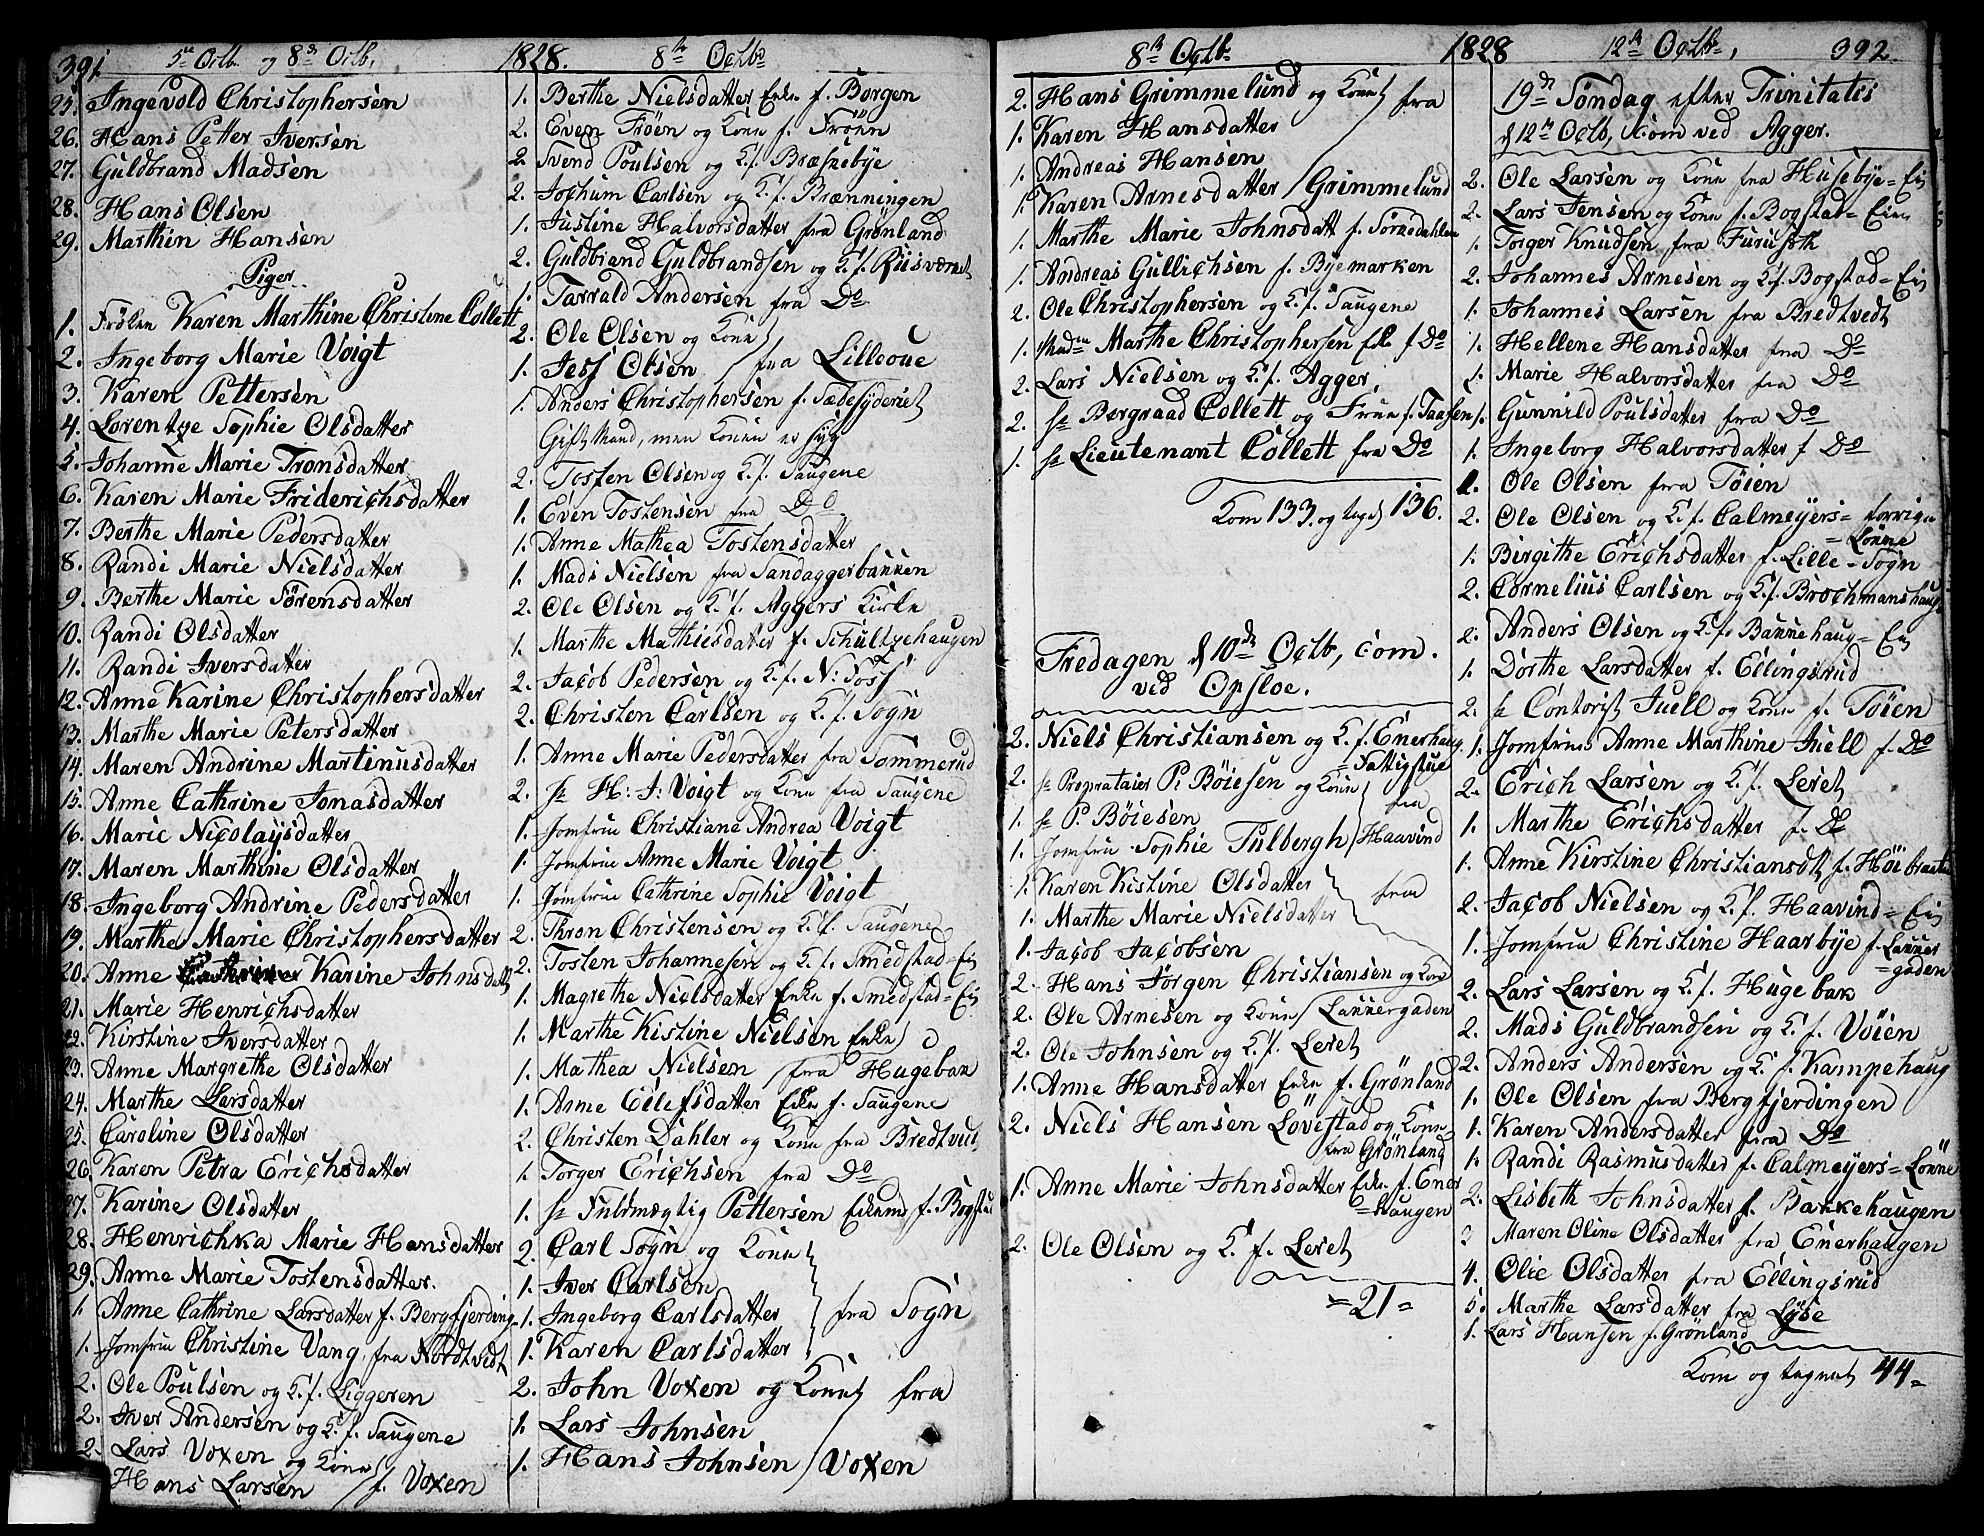 391. 5te Octb. og 8de Octb.
25. Ingevold Christophersen
26. Hans Petter Iversen
27. Guldbrand Madsen
28. Hans Olsen
29. Marthin Hansen
Piger.
1. Frøken Karen Marthine Christine Collett
2. Ingeborg Marie Voigt
3. Karen Pettersen
4. Lorentze Sophie Olsdatter
5. Johanne Marie Tronsdatter
6. Karen Marie Friderichsdatter
7. Berthe Marie Pedersdatter
8. Randi Marie Nielsdatter
9. Berthe Marie Sørensdatter
10. Randi Olsdatter
11. Randi Iversdatter
12. Anne Karine Christophersdatter
13. Marthe Marie Petersdatter
14. Maren Andrine Martinusdatter
15. Anne Cathrine Jonasdatter
16. Marie Nicolaysdatter
17. Maren Marthine Olsdatter
18. Ingeborg Andrine Pedersdatter
19. Marthe Marie Christophersdatter
20. Anne Karine Johnsdatt
21. Marie Henrichsdatter
22. Kirstine Iversdatter
23. Anne Margrethe Olsdatter
24. Marthe Larsdatter
25. Caroline Olsdatter
26. Karen Petra Erichsdatter
27. Karine Olsdatter
28. Henrichka Marie Hansdatter
29. Anne Marie Tostensdatter.
1. Anne Cathrine Larsdatter f. Bergfjerding
1. Jomfru Christine Vang fra Nordtvedt
2. Ole Poulsen og K. f. Liggeren
2. Iver Andersen og K. f. Saugene
2. Lars Voxen og Kone
Hans Larsen / f. Voxen
1828. 8de Octbr
1. Berthe Nielsdatter Enke f. Borgen
2. Even Frøen og Kone f. Frøen
2. Svend Poulsen og K. f. Bræknebye
2. Jochum Carlsen og K. f. Brænningen
1. Justine Halvorsdatter fra Grønland
2. Guldbrand Guldbrandsen og K. f. Riisværket
1. Tarrald Andersen fra Do
2. Ole Olsen og Kone
1. Jess Olsen / fra Lilleoue
1. Anders Christophersen f. Sædesyderiet
Gift Mand, men Konen er syg
2. Tosten Olsen og K. f. Saugene
1. Even Tostensen fra Do
1. Anne Mathea Tostensdatter
1. Mads Nielsen fra Sandaggerbakken
2. Ole Olsen og K. f. Aggers Kirke
1. Marthe Mathiesdatter f. Schultzehaugen
2. Jacob Pedersen og K. f. N: Foss
2. Christen Carlsen og K. f. Sogn
1. Anne Marie Pedersdatter fra Sommerud
2. Hr H: J: Voigt og Kone fra Saugene
1. Jomfru Christiane Andrea Voigt
1. Jomfru Anne Marie Voigt
1. Jomfru Cathrine Sophie Voigt
2. Thron Christensen og K. f. Saugene
2. Tosten Johannesen og K. f. Smedstad-Eie
1. Magrethe Nielsdatter Enke f. Smedstad-Eie
1. Marthe Kistine Nielsen Enke
1. Mathea Nielsen / fra Hugebak
1. Anne Eilefsdatter Enke f. Saugene
2. Christen Dahler og Kone fra Bredtvedt
1. Torger Erichsen fra Do
1. Hr Fuldmægtig Pettersen Enkemd f. Bogstad
2. Carl Sogn og Kone
1. Iver Carlsen
1. Ingeborg Carlsdatter / fra Sogn
1. Karen Carlsdatter
2. John Voxen og Kone fra
1. Lars Johnsen
1. Hans Johnsen / Voxen
8de Octbr.
2. Hans Grimmelund og Kone fra
1. Karen Hansdatter
1. Andreas Hansen
1. Karen Arnesdatter / Grimmelund
1. Marthe Marie Johnsdatt f. Sørkedahlen
1. Andreas Gullichsen f. Byemarken
2. Ole Christophersen og K. f. Saugene
1. Marthe Christophersen Ek f Do
2. Lars Nielsen og K. f. Agger.
2. Hr Bergraad Collett og Frue f. Taasen
1. Hr Lieutenant Collett fra Do
Kom 133. og tegned 136.
Fredagen d 10de Octb, com.
ved Opsloe.
2. Niels Christiansen og K. f. Enerhaug
= Fattigstue
2. Hr Proprietaier P. Böiesen og Kone
1. Hr P. Böiesen / fra
1. Jomfru Sophie Tulbergh / Haavind
1. Karen Kistine Olsdatter
1. Marthe Marie Nielsdatter fra
1. Jacob Jacobsen
2. Hans Jørgen Christiansen og Kone
2. Ole Arnesen og Kone / Lakkergaden
2. Ole Johnsen og K. f. Leret
1. Anne Hansdatter Enke f. Grönland
2. Niels Hansen Lövestad og Kone
fra Grønland
1. Anne Marie Johnsdatter Enke f. Ener
= haugen
2. Ole Olsen og K. f. Leret
= 21 =
1828 12te Octbr, 392.
19de Søndag efter Trinitatis
d 12te Octb, com ved Agger.
2. Ole Larsen og Kone fra Husebye=Eie
2. Lars Jensen og Kone f. Bogstad=Eie
1. Torger Knudsen fra Furusæth
2. Johannes Arnesen og K. f. Bogstad=Eie
1. Johannes Larsen fra Bredtvedt
1. Hellene Hansdatter fra Do
1. Marie Halvorsdatter fra Do
1. Gunnild Poulsdatter fra Do
1. Ingeborg Halvorsdatter f Do
1. Ole Olsen fra Töien
2. Ole Olsen og K. f. Calmeyers= forrige
= Lökke
1. Birgithe Erichsdatter f. Lille=Sogn
2. Cornelius Carlsen og K. f. Brochmanshaug
2. Anders Olsen og K. f. Bakkehaug=Eie
1. Dorthe Larsdatter f. Ellingsrud
2. Hr Contorist Juell og Kone f. Töien
1. Jomfrue Anne Marthine Juell f. Do
2. Erich Larsen og K. f. Leret
1. Marthe Erichsdatter f. Do
1. Anne Kirstine Christiansdt f. Höi
2. Jacob Nielsen og K. f. Haavind=Eie
1. Jomfru Christine Haarbye f. Lakker
=gaden
2. Lars Larsen og K. f. Hugebak
2. Mads Guldbrandsen og K. f Vöien
2. Anders Andersen og K f. Kampehaug
1. Ole Olsen fra Bergfjerdingen
1. Karen Andersdatter fra Do
1. Randi Rasmusdatter f. Calmeyers=Lökke
2. Lisbeth Johnsdatter f. Bakkehaugen
3 Maren Oline Olsdatter fra Enerhaugen
4. Olie Olsdatter fra Ellingsrud
5. Marthe Larsdatter fra Lyse
1. Lars Hansen f. Grönland
Kom og tegnet 44=